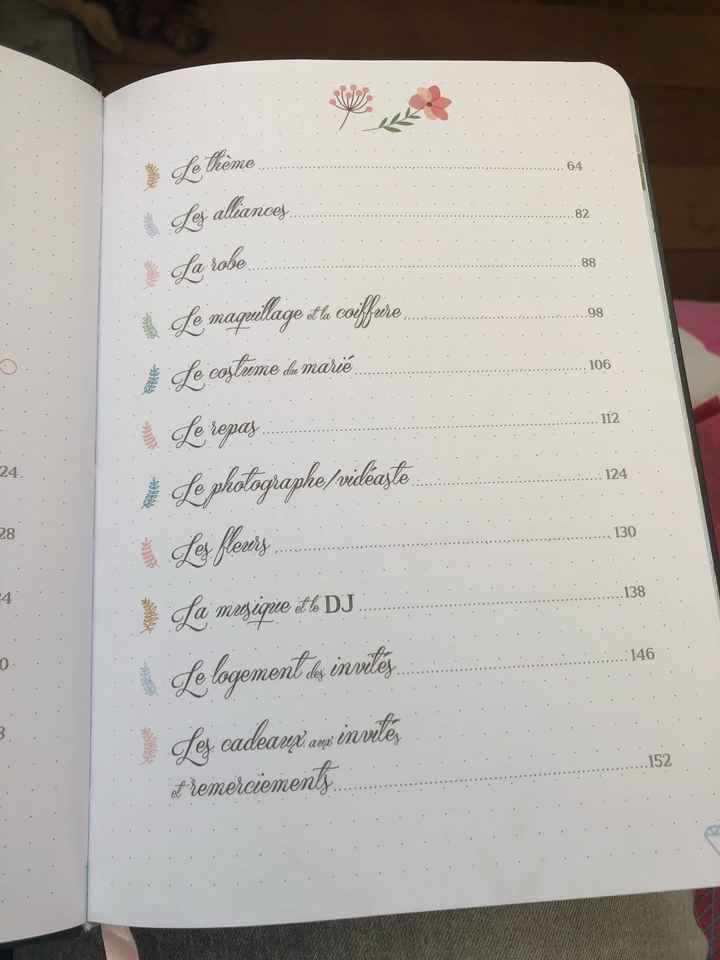 24
28
Le thème 64
Les alliances 82
La robe 88
Le maquillage et la coiffure 98
Le costume du marié 106
Le repas 112
Le photographe/vidéaste 124
Les fleurs 130
La musique et le DJ 138
Le logement des invités 146
Les cadeaux aux invités
et remerciements 152